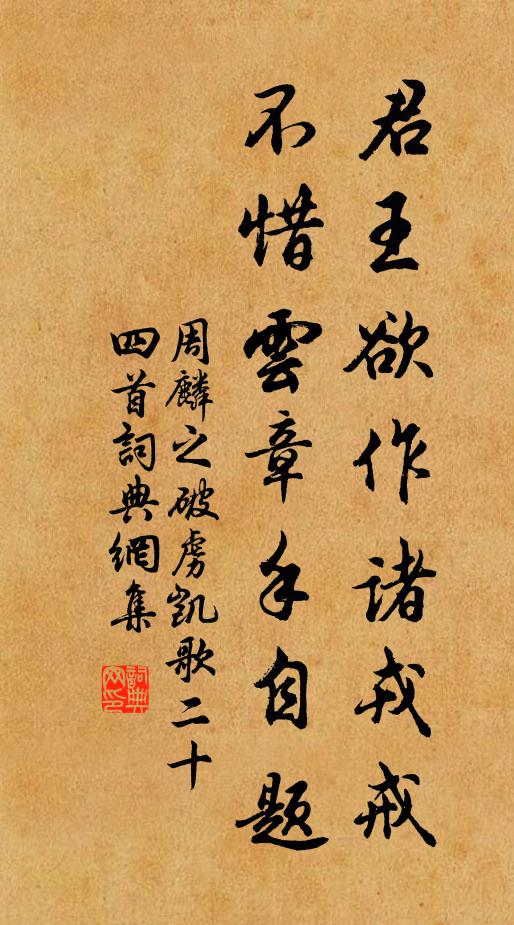 君王欲作諸戎戒
不惜雲章手自題
周麟之破虜凱歌二十
四首詞典網集
詞典网印